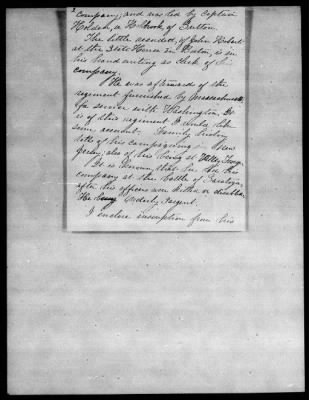 2
company, and was led by Captain
Holden, a
The little record, of John Hobart
at the State House in Boston, is in
his handwriting as clerk of
company.
He was afterwards of the
regiment furnished by Massachusetts
for service with Washington. It
is of this regiment I would like
some account. Family history
tells of his campaigning in New
Jersey, also of his being at Valley Forge.
It is known, that he led his
company at the battle of Saratoga,
after his officers were killed or disabled,
He being Orderly Sargent.
I enclose inscription from his